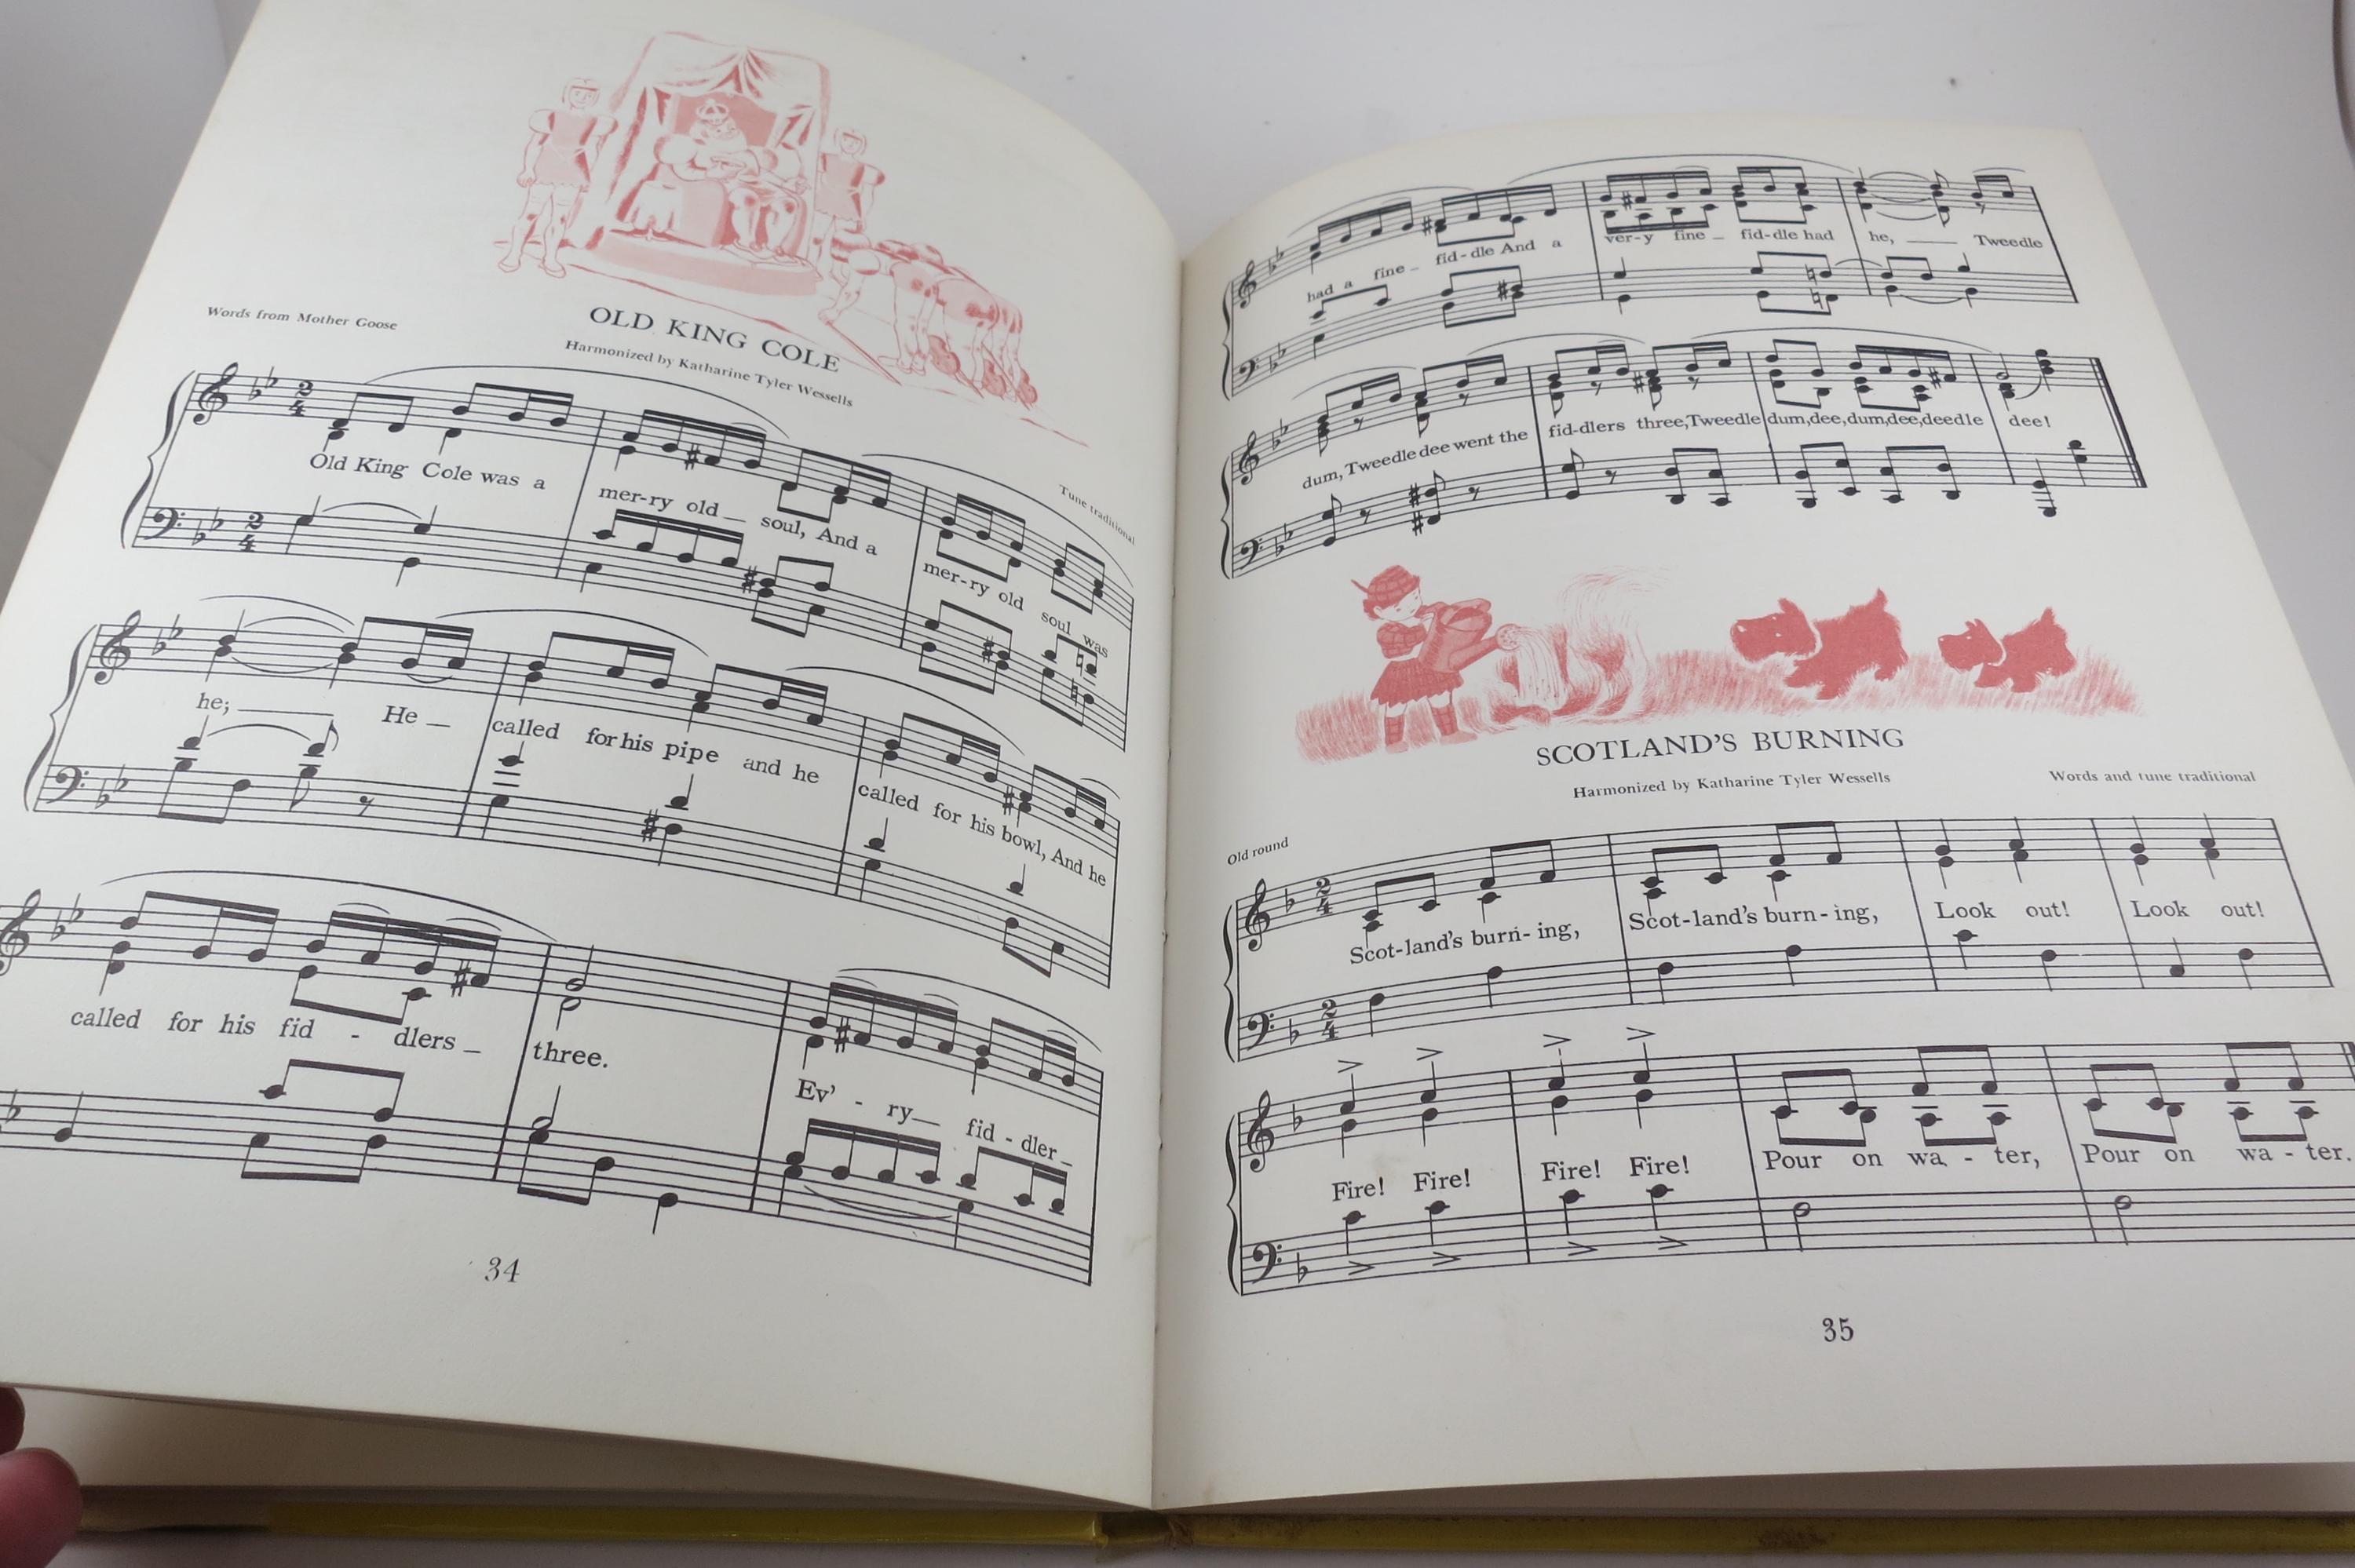 OLD KING COLE
Words from Mother Goose
Harmonized by Katharine Tyler Wessells
Tune traditional
2
4
Old King Cole was a mer-ry old _ soul, And a mer-ry old soul was
2
4
he; _ He _ called for his pipe and he called for his bowl, And he
called for his fid - dlers _ three. Ev' - ry _ fid - dler _
34
had a fine _ fid-dle And a ver-y fine _ fid-dle had he, _ Tweedle
dum, Tweedle dee went the fid-dlers three, Tweedle dum, dee, dum, dee, deedle dee!
SCOTLAND'S BURNING
Harmonized by Katharine Tyler Wessells
Words and tune traditional
Old round
2
4
Scot-land's burn-ing, Scot-land's burn-ing, Look out! Look out!
2
4
Fire! Fire! Fire! Fire! Pour on wa - ter, Pour on wa - ter.
35